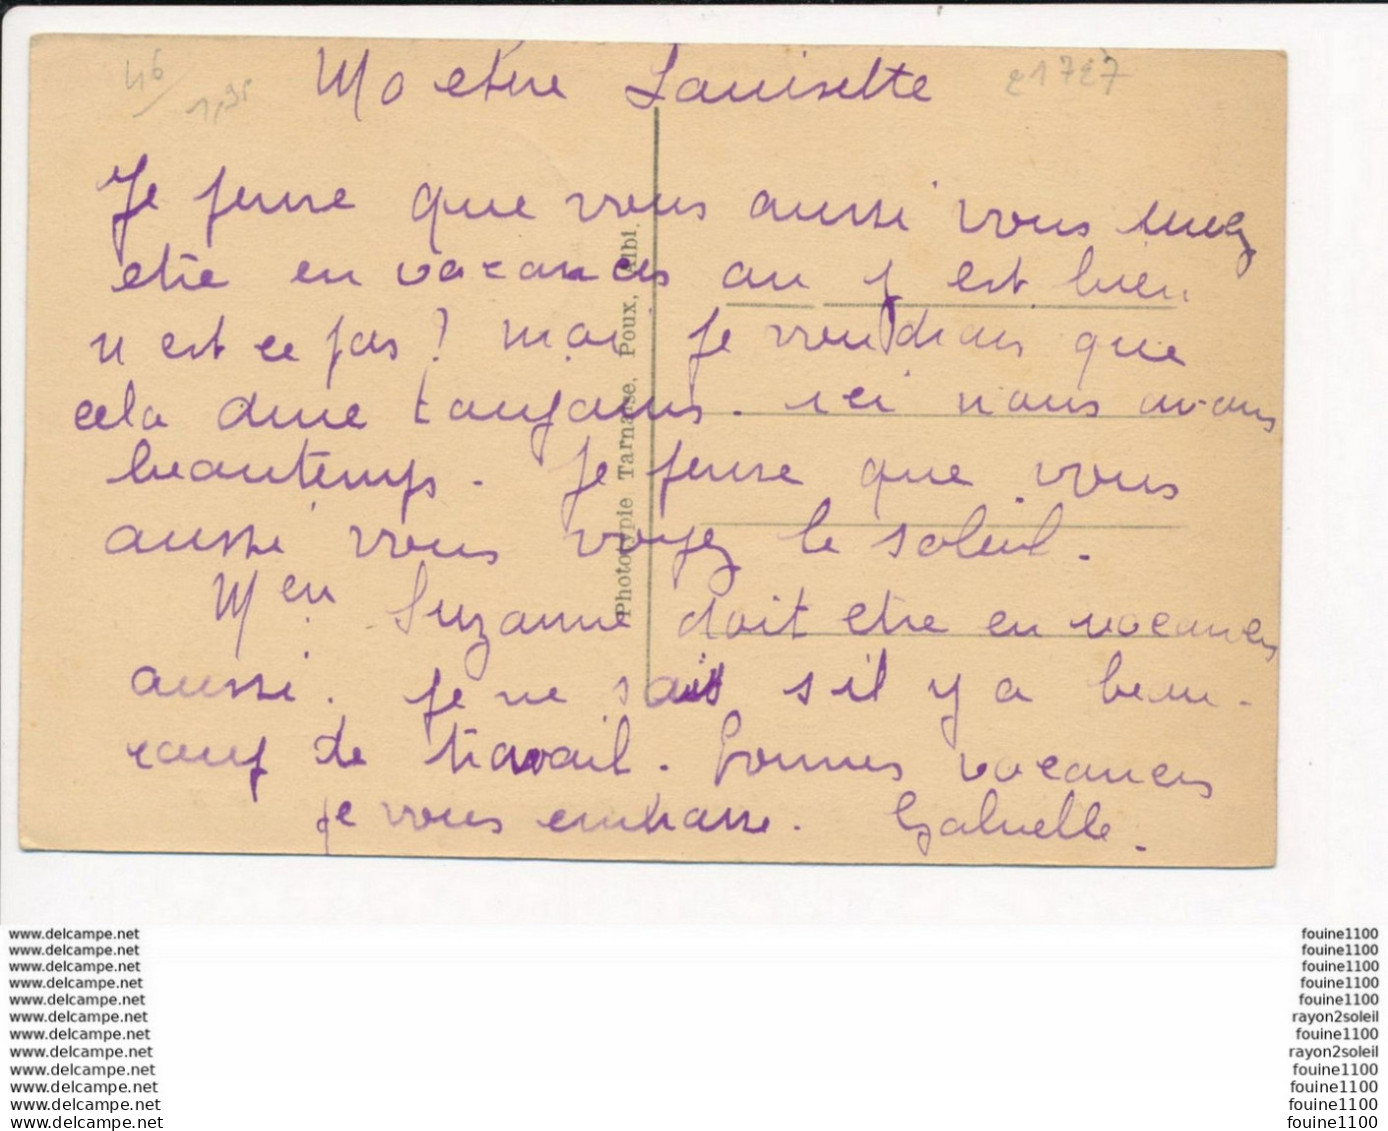 46/
1,35
Ma chère Louisette
21727
Je pense que vous aussi vous
etre en vacances on y est bien
n est ce pas? moi je voudrais que
cela dure toujours. ici nous avons
beautemps. Je pense que vous
aussi vous voyez le soleil.
Suzanne doit etre en vacances
aussi. je ne sais s il y a beau-
coup de travail. Bonnes vacances
je vous embrasse. Gabrielle.
Phototypie Tarnaise, Poux, Albi.
www.delcampe.net fouine1100
www.delcampe.net fouine1100
www.delcampe.net fouine1100
www.delcampe.net fouine1100
www.delcampe.net fouine1100
www.delcampe.net rayon2soleil
www.delcampe.net fouine1100
www.delcampe.net rayon2soleil
www.delcampe.net fouine1100
www.delcampe.net fouine1100
www.delcampe.net fouine1100
www.delcampe.net fouine1100